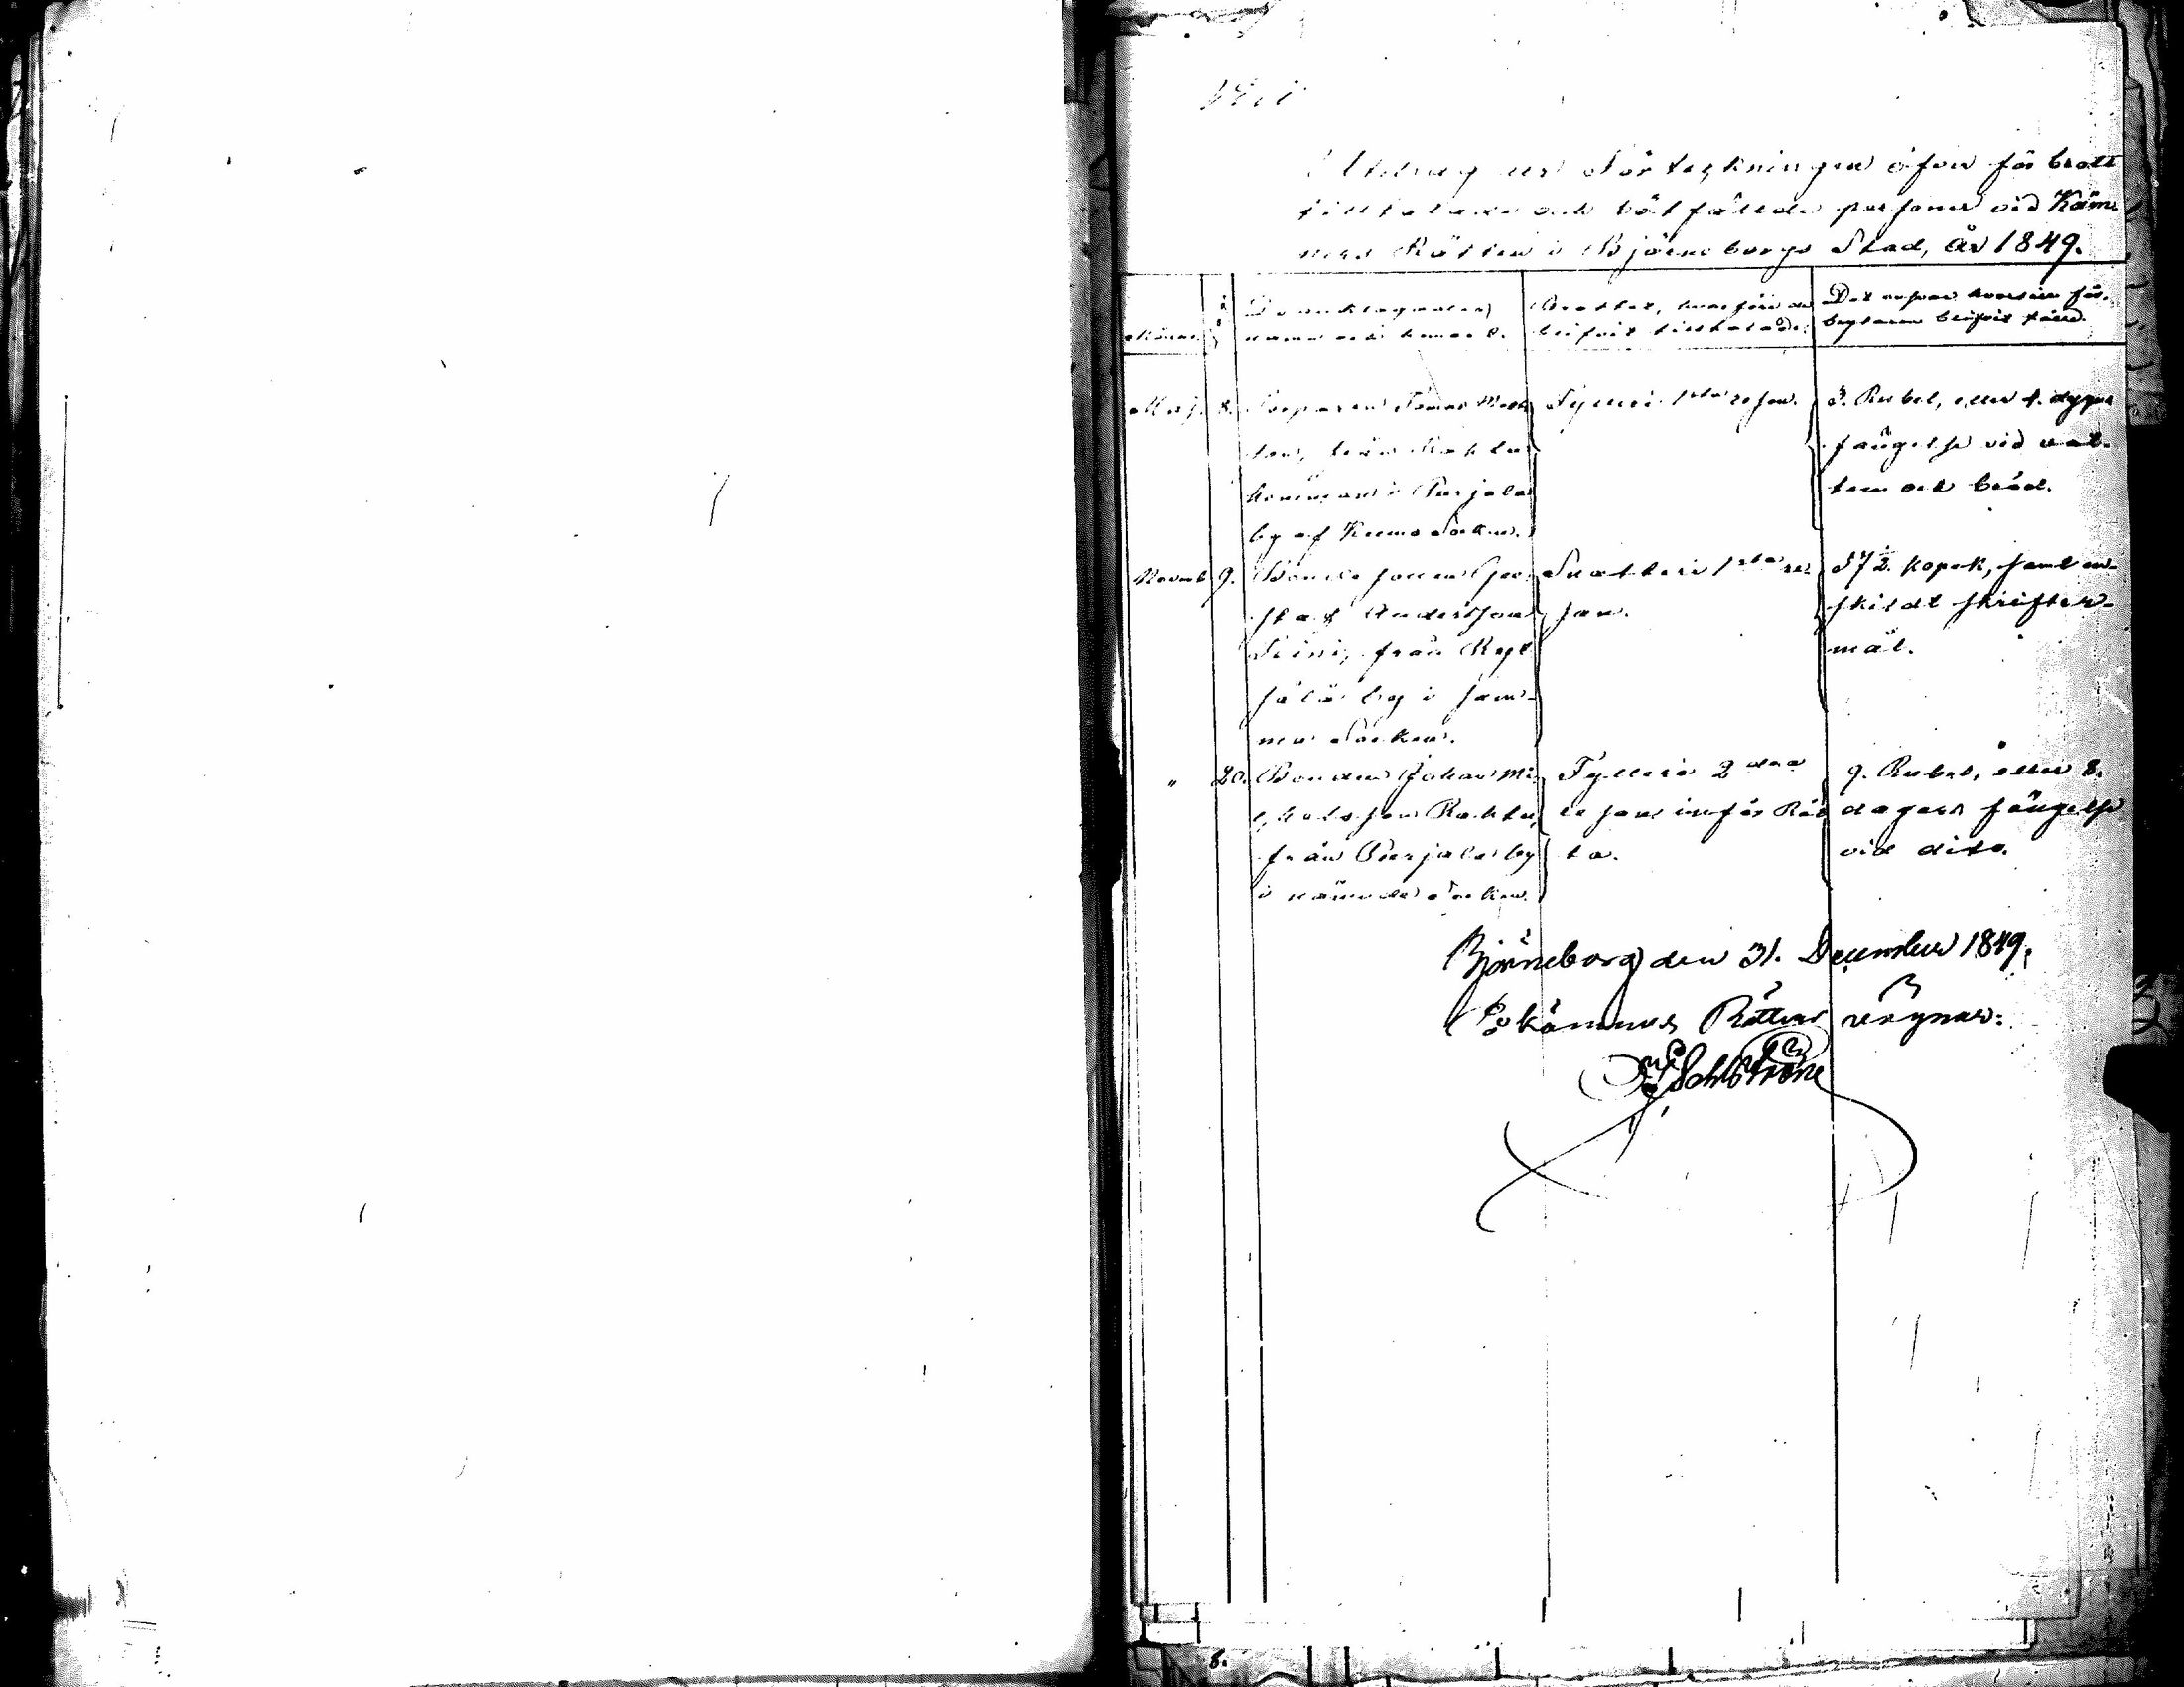 Utdrag ur Förteckningen öfver för brott
tilltalade och sakfällde personer vid Käm-
ners Rätten i Björneborgs Stad, år 1849.
De anklagades
namn och hemvist.
Brottet, hvarföre de
blifvit tilltalade.
Det ansvar hvartill för-
brytaren blifvit fälld.
Maj. 8.
Torparen Tomas
från Rahku
hemman i Purjala
by af Kumo Socken.
Fylleri 1sta resan.
3. Rubel, eller 4. dygns
fängelse vid vat-
ten och bröd.
Novemb. 9.
Bonde sonen Gu-
staf Andersson
från
by i sam-
ma Socken.
Snatteri 1sta re-
san.
57½ kopek, samt en-
skildt skrifter-
mål.
" 20.
Bonden Johan Mi-
chelsson Rahku,
från Purjala by
i nämnde Socken.
Fylleri 2dra
resan inför Rät-
ta.
9. Rubel, eller 8.
dagars fängelse
vid dito.
Björneborg den 31. December 1849.
På Kämners Rättens vägnar:
8.